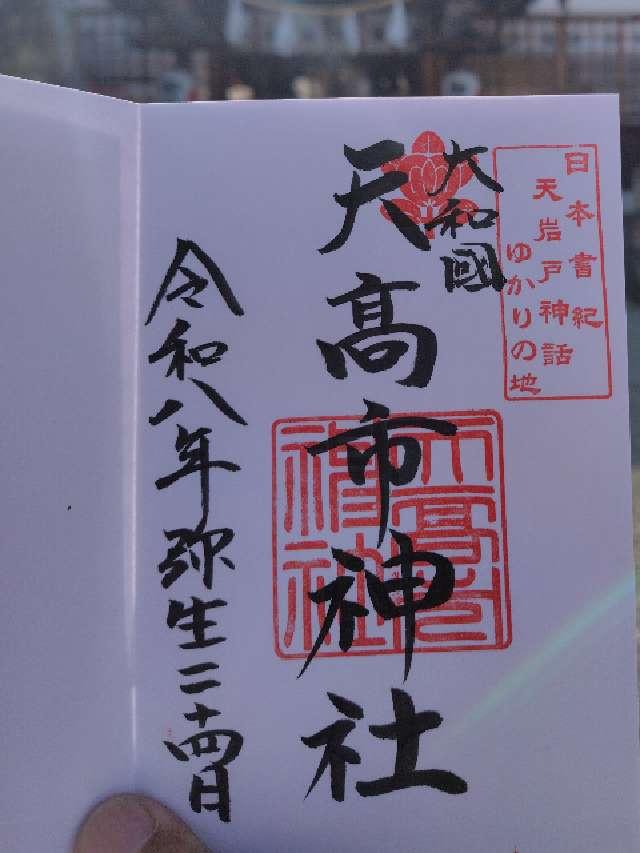 日本書紀
天岩戸神話
ゆかりの地
大和國
天高市神社
天高市神社
令和八年弥生二十四日